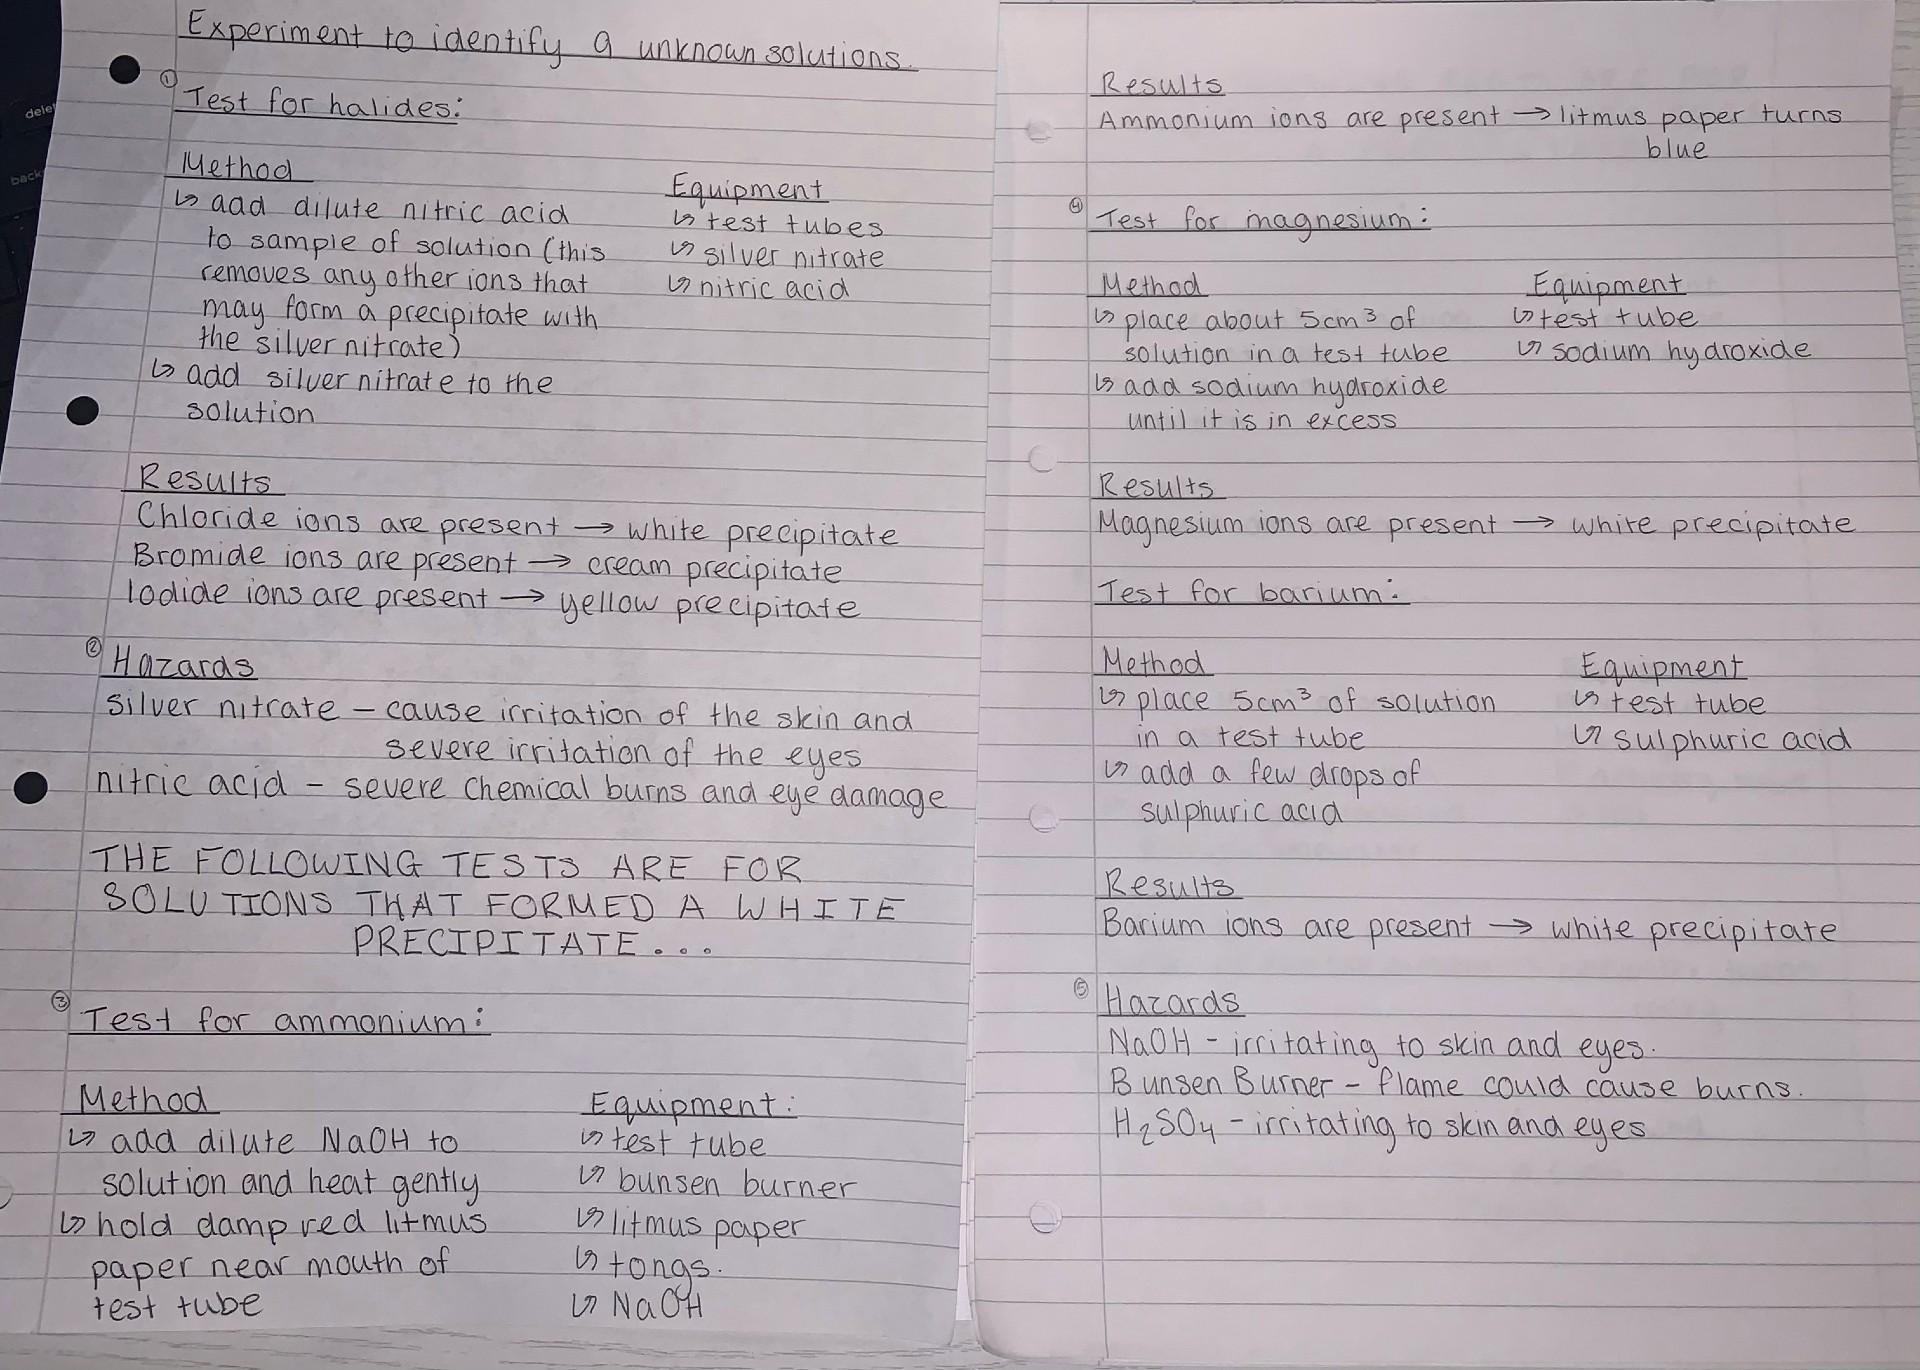 Experiment to identify a unknown solutions.
① Test for halides:
Method
↳ add dilute nitric acid
to sample of solution (this
removes any other ions that
may form a precipitate with
the silver nitrate)
↳ add silver nitrate to the
solution
Equipment
↳ test tubes
↳ silver nitrate
↳ nitric acid
Results
Chloride ions are present → white precipitate
Bromide ions are present → cream precipitate
Iodide ions are present → yellow precipitate
② Hazards
silver nitrate – cause irritation of the skin and
severe irritation of the eyes
nitric acid – severe chemical burns and eye damage
THE FOLLOWING TESTS ARE FOR
SOLUTIONS THAT FORMED A WHITE
PRECIPITATE...
③ Test for ammonium:
Method
↳ add dilute NaOH to
solution and heat gently
↳ hold damp red litmus
paper near mouth of
test tube
Equipment:
↳ test tube
↳ bunsen burner
↳ litmus paper
↳ tongs.
↳ NaOH
Results
Ammonium ions are present → litmus paper turns
blue
④ Test for magnesium:
Method
↳ place about 5cm³ of
solution in a test tube
↳ add sodium hydroxide
until it is in excess
Equipment
↳ test tube
↳ sodium hydroxide
Results
Magnesium ions are present → white precipitate
Test for barium:
Method
↳ place 5cm³ of solution
in a test tube
↳ add a few drops of
sulphuric acid
Equipment
↳ test tube
↳ sulphuric acid
Results
Barium ions are present → white precipitate
⑤ Hazards
NaOH – irritating to skin and eyes.
Bunsen Burner – flame could cause burns.
H₂SO₄ – irritating to skin and eyes
dele
back